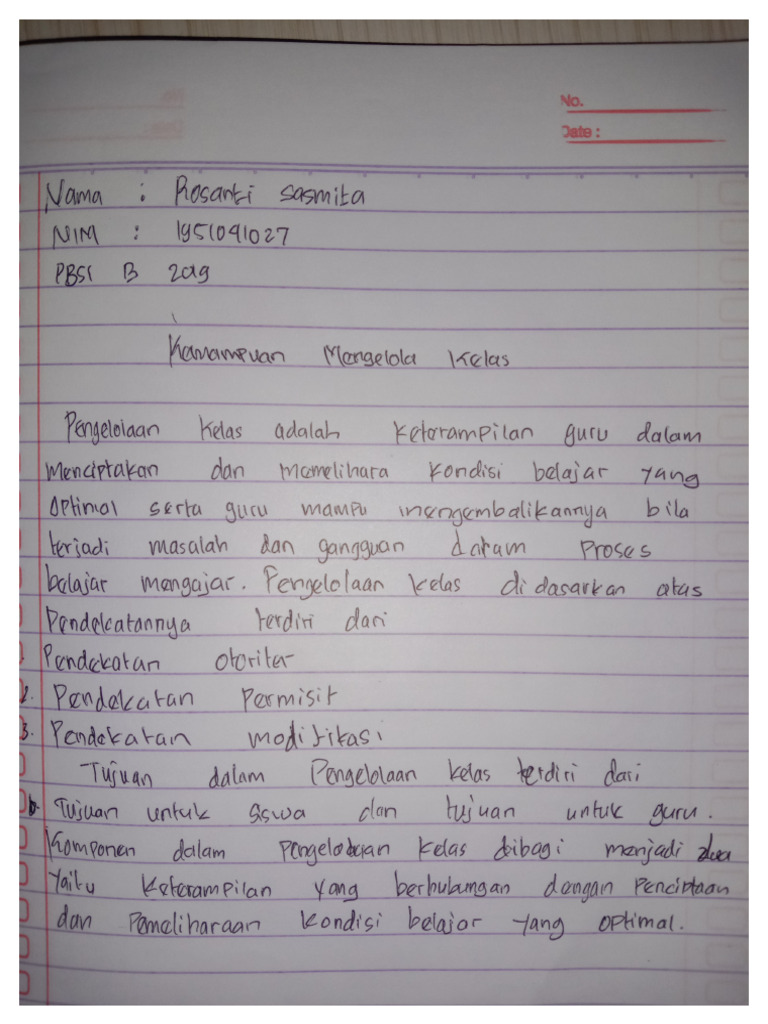 No.
Date :
Nama : Rosanti Sasmita
NIM : 1951091027
PBSI B 2019
Kamampuan Mengelola Kelas
Pengelolaan Kelas adalah keterampilan guru dalam
menciptakan dan memelihara kondisi belajar yang
optimal serta guru mampu mengembalikannya bila
terjadi masalah dan gangguan dalam proses
belajar mengajar. Pengelolaan kelas didasarkan atas
Pendekatannya terdiri dari
Pendekatan otoriter
2. Pendekatan Permisif
3. Pendekatan modifikasi
Tujuan dalam Pengelolaan kelas terdiri dari
Tujuan untuk siswa dan tujuan untuk guru.
Komponen dalam pengelolaan kelas dibagi menjadi dua
yaitu Keterampilan yang berhubungan dengan Penciptaan
dan Pemeliharaan kondisi belajar yang optimal.